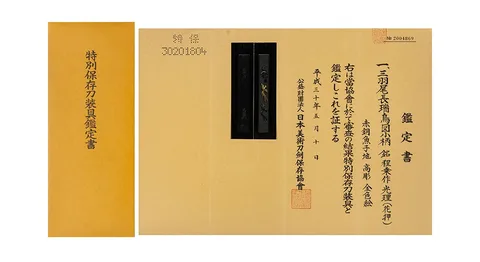 特別保存刀装具鑑定書
特保
30201804
鑑定書
一、三羽尾長瑞鳥図小柄 銘 程乗作 光理(花押)
赤銅魚子地 高彫 金色絵
右は當協會に於て審査の結果特別保存刀装具と
鑑定しこれを証する
平成三十年五月十日
公益財団法人日本美術刀剣保存協會